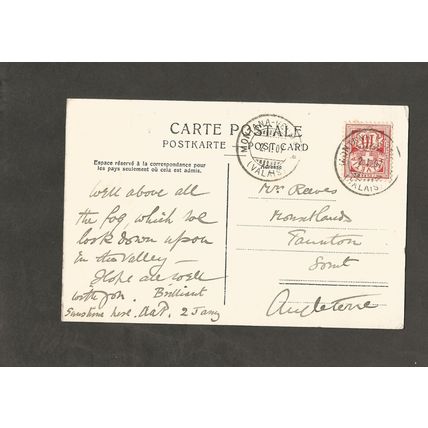 CARTE POSTALE
POSTKARTE POST CARD
Espace réservé à la correspondance pour
les pays seulement où cela est admis.
Adresse
MONTANA-V
2. I. 07
(VALAIS)
VALAIS
Well above all
the fog which we
look down upon
in the Valley —
Hope all well
with you. Brilliant
Sunshine here. 2 Jany
Mrs Reeves
Mountlands
Taunton
Somt
Angleterre